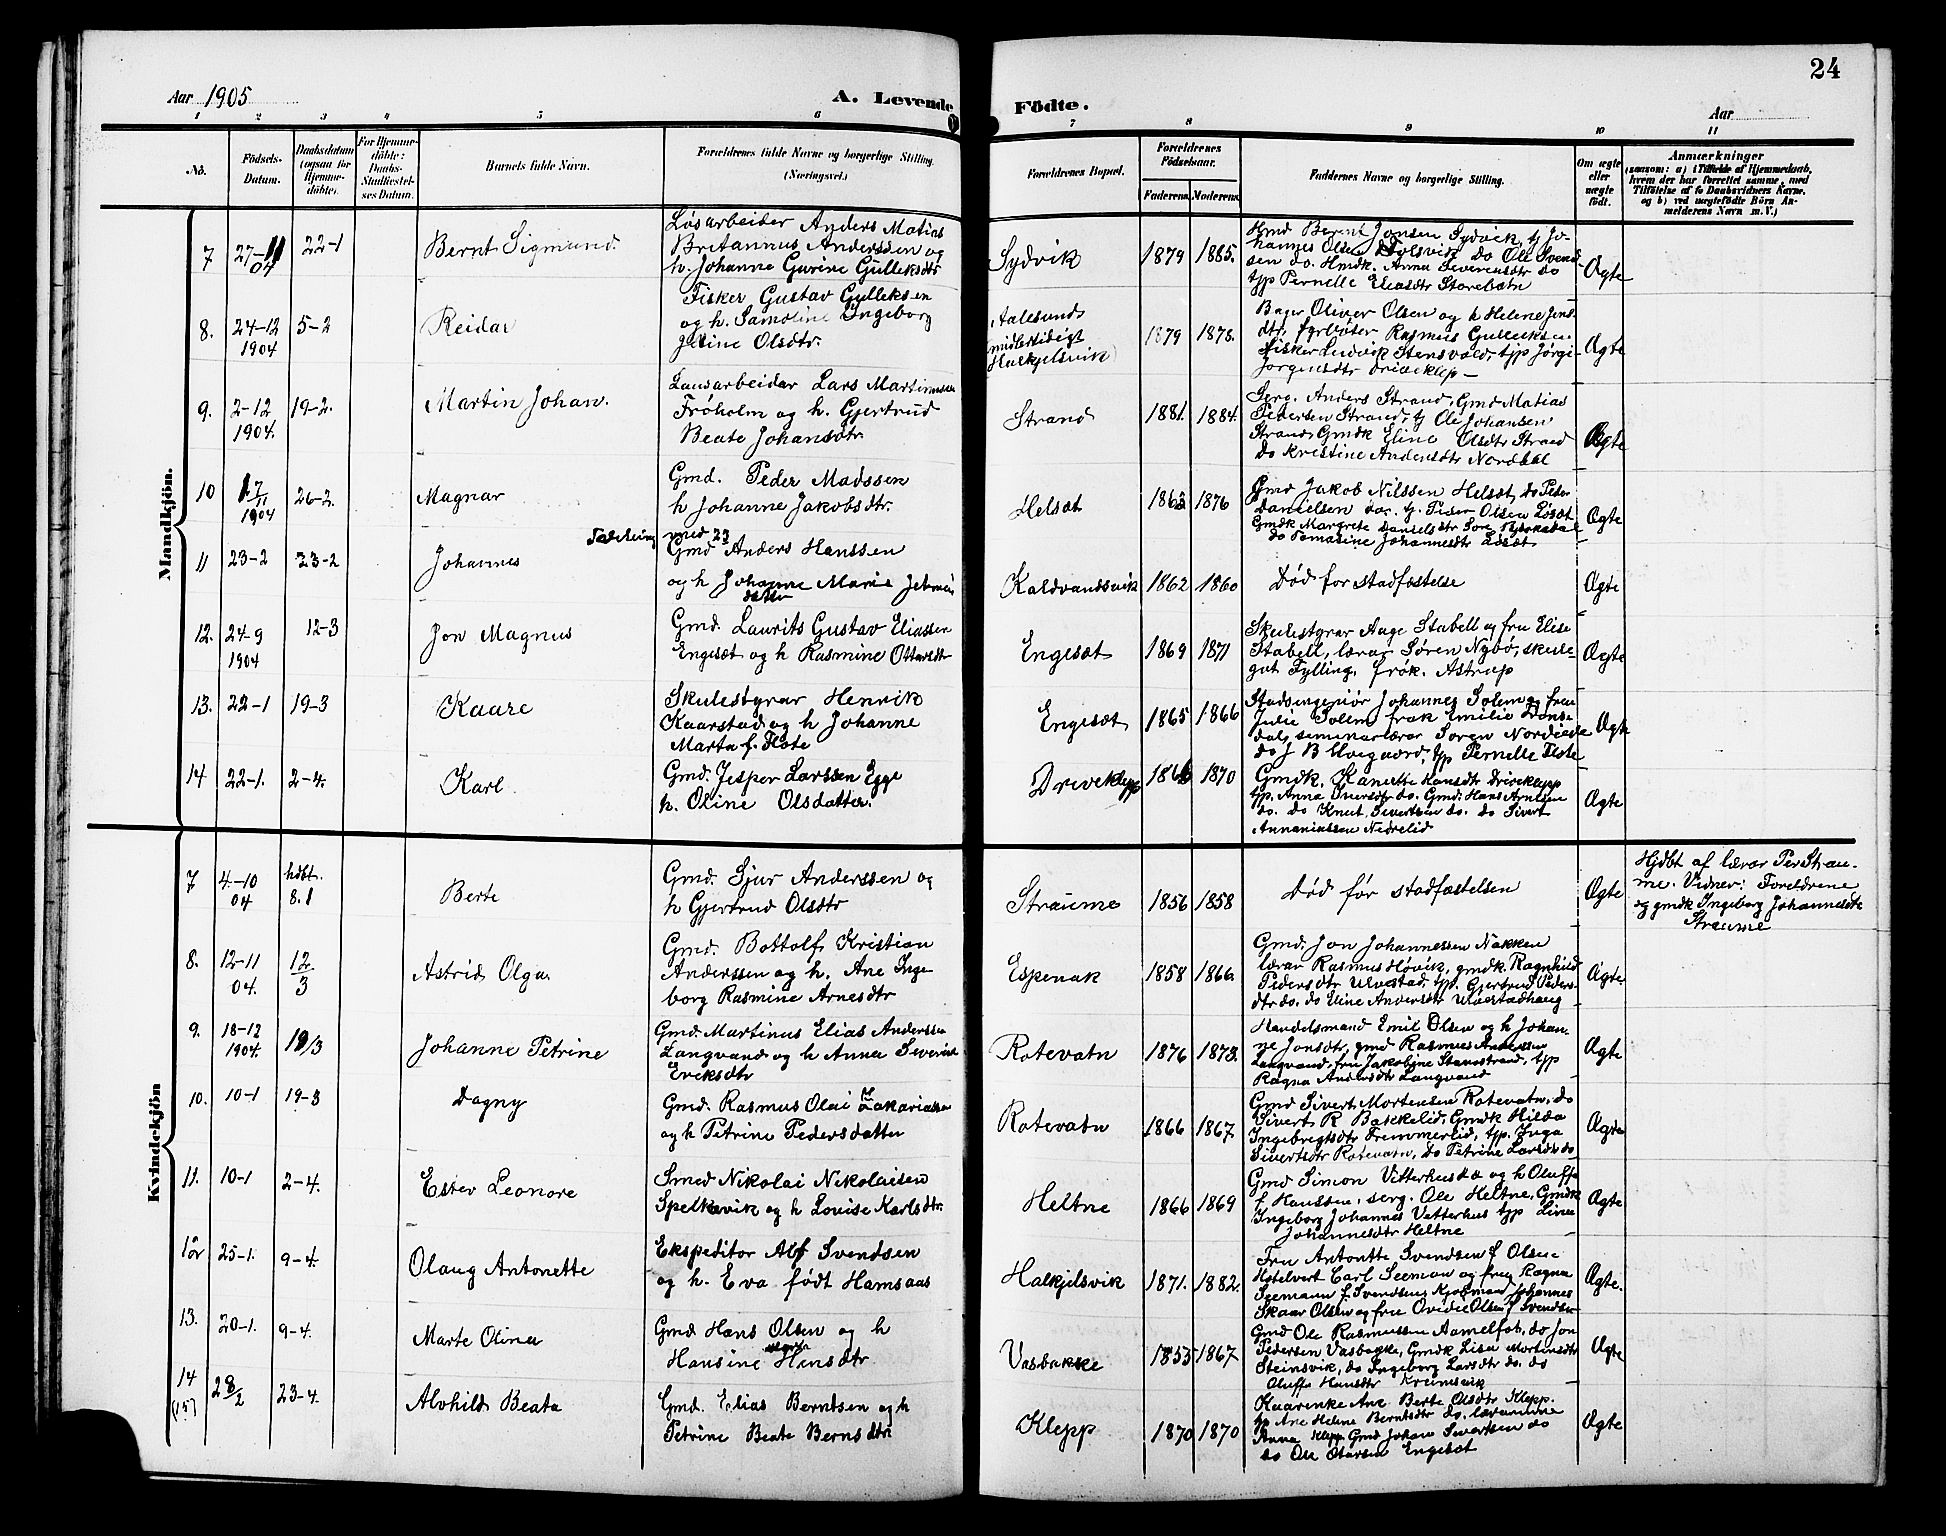 24
Aar 1905
A. Levende Födte.
Aar
1 2 3 4 5 6 7 8 9 10 11
No.
Födsels-Datum.
Daabsdatum (ogsaa for Hjemme-döbte).
For Hjemme-döbte: Daabs-Stadfæstel-ses Datum.
Barnets fulde Navn.
Forældrenes fulde Navne og borgerlige Stilling. (Næringsvei.)
Forældrenes Bopæl.
Forældrenes Födselsaar.
Faderens. Moderens.
Faddernes Navne og borgerlige Stilling.
Om ægte eller uægte födt.
Anmærkninger
(saasom: a) i Tilfælde af Hjemmedaab, hvem der har forrettet samme, med Tilföielse af to Daabsvidners Navne, og b) ved uægtefödte Börn Anmelderens Navn m. V.)
Mandkjön.
7 27-11 04 22-1 Bernt Sigmund
Løsarbeider Anders Matias
Britannus Anderssen og
h. Johanne Gurine Gulleksdtr
Sydvik 1879 1885.
Gmd Bernt Jonsen Sydvik, tj Jo-
hannes Olsen Folsvik do Ole Svend-
sen do. Gmdk. Anna Severensdtr do
tjp Pernelle Eliasdtr Storebøtn
Ægte
8. 24-12 1904 5-2 Reidar
Fisker Gustav Gulleksen
og h. Samoline Ingeborg
Jetine Olsdtr.
Aalesund (midlertidigt Halkjelsvik) 1879 1878.
Bager Oliver Olsen og h Helene Jens
dtr. fyrbøter Rasmus Gulleksen
fisker Ludvik Stensvold, tjp Jørgi-
Jørgensdtr Driveklep
Ægte
9. 2-12 1904. 19-2. Martin Johan.
Lausarbeidar Lars Martinussen
Frøholm og h. Gjertrud
Beate Johansdtr.
Strand 1881. 1884.
Serg. Anders Strand, Gmd Matias
Pedersen Strand, tj Ole Johansen
Strand Gmdk Eline Olsdtr Strand
do Kristine Andersdtr Nordbal
Ægte
10 17/11 1904 26-2. Magnar
Gmd. Peder Madssen
h Johanne Jakobsdtr.
Helsæt 1863 1876
Gmd Jakob Nilssen Helsæt, do Peder
Danielsen do. tj. Peder Olsen Løsæt
Gmdk Margrete Danielsdtr
do Tomasine Johannesdtr Løsæt
Ægte
11 23-2 23-2 Johannes
med 23
Gmd Anders Hanssen
og h Johanne Marie
datter
Kaldvandsvik 1862 1860
Død for stadfæstelse
Ægte
12. 24-9 1904 12-3 Jon Magnus
Gmd. Laurits Gustav Eliassen
Engesæt og h Rasmine Ottarsdtr
Engesæt 1869 1871
Skulestyrar Aage Stabell og fru Elise
Stabell, lærar Søren Nybø, skule-
gut Fylling, frøk. Astrup
Ægte
13. 22-1 19-3 Kaare
Skulestyrar Henrik
Kaarstad og h Johanne
Marta f. Flote
Engesæt 1865 1866
Stadsingeniør Johannes Solem og frau
Julie Solem frøk Emilie Dons-
dal, seminarlærar Søren Nordeide
do J B Hvegaard, tjp Pernelle Flote
Ægte
14 22-1. 2-4. Karl
Gmd. Jesper Larssen Egge
h. Oline Olsdatter.
Driveklepp 1866 1870
Gmdk. Hansdtr Driveklepp
tjp. Anna Iversdtr do. Gmd: Hans Arntsen
do. do Knut Sivertsen do. do Sivert
Annaniassen Nedrelid
Ægte
Kvindekjön
7 4-10 04 hdbt. 8.1 Berte
Gmd. Sjur Anderssen og
h Gjertrud Olsdtr
Straume 1856 1858
Død før stadfæstelsen
Ægte
Hjdbt af lærar Per Strau-
me. Vidner: Foreldrene
og gmdk Ingeborg Johannesdtr
Straume
8. 12-11 04. 12/3 Astrid Olga
Gmd. Bottolf Kristian
Anderssen og h. Ane Inge-
borg Rasmine Arnesdtr
Espenak 1858 1866.
Gmd. Jon Johannessen Nakken
lærar Rasmus Høvik, gmdk. Ragnhild
Pedersdtr Ulvestad, tjp. Gjertrud Peders-
dtr do. do Eline Andersdtr Ulvestadhaug
Ægte
9. 18-12 1904. 19/3 Johanne Petrine
Gmd. Martinus Elias Anderssen
Langvand og h Anna Severine
Ericksdtr
Rotevatn 1876 1873.
Handelsmand Emil Olsen og h Johan-
ne Jonsdtr, gmd Rasmus Anderssen
Langvand, fru Jakobine Stavstrand, tjp
Ragna Andersdtr Langvand
Ægte
10. 10-1 19-3 Dagny
Gmd. Rasmus Olai Zakariassen
og h Petrine Pedersdatter
Rotevatn 1866 1867
Gmd Sivert Mortensen Rotevatn, do
Sivert R Bakkelid, Gmdk Hilda
Ingebregtsdtr Fremmerlid, tjp. Inga
Sivertsdtr Rotevatn, do Petrine Larsdtr do
Ægte
11. 10-1 2-4. Ester Leonore
Smed Nikolai Nikolaisen
Spelkavik og h Louise Karlsdtr.
Heltne 1866 1869
Gmd Simon Vitterhus do og h Oluffa
f Hanssen, serg. Ole Heltne, Gmdk
Ingeborg Johannes Vatterhus tjp Line
Johannesdtr Heltne
Ægte
12 25-1. 9-4. Olaug Antonette
Ekspeditor Alf Svendsen
og h. Eva født Hamsaas
Halkjelsvik 1871. 1882.
Fru Antontte Svendsen f Olsen
Hotelvert Carl Seeman og frey Ragna
Seemann f Svendsen, Kjøbmand Johannes
Skaar Olsen og frue Ovidie Olsen f Svendsen
Ægte.
13. 20-1. 9-4. Marte Olina
Gmd Hans Olsen og h
Hansine Marta Hansdtr
Vasbakke 1853 1867
Gmd Ole Rasmussen Aamelfot, do Jon
Pedersen Vasbakke, Gmdk Lisa Mortensdtr
Steinsvik, do Ingeborg Larsdtr do. do
Oluffa Hansdtr Kreimsvik
Ægte
14 (15) 28/2 23-4. Alvhild Beata
Gmd. Elias Berntsen og h
Petrine Beate Bernsdtr
Klepp 1870 1870
Kaarenke Ane Berte Olsdtr Klepp.
tjp Ane Helene Berntsdtr do, lærarinne
Anna Klepp Gmd Johan Sivertsen do
do Ole Olarsen Engesæt
Ægte